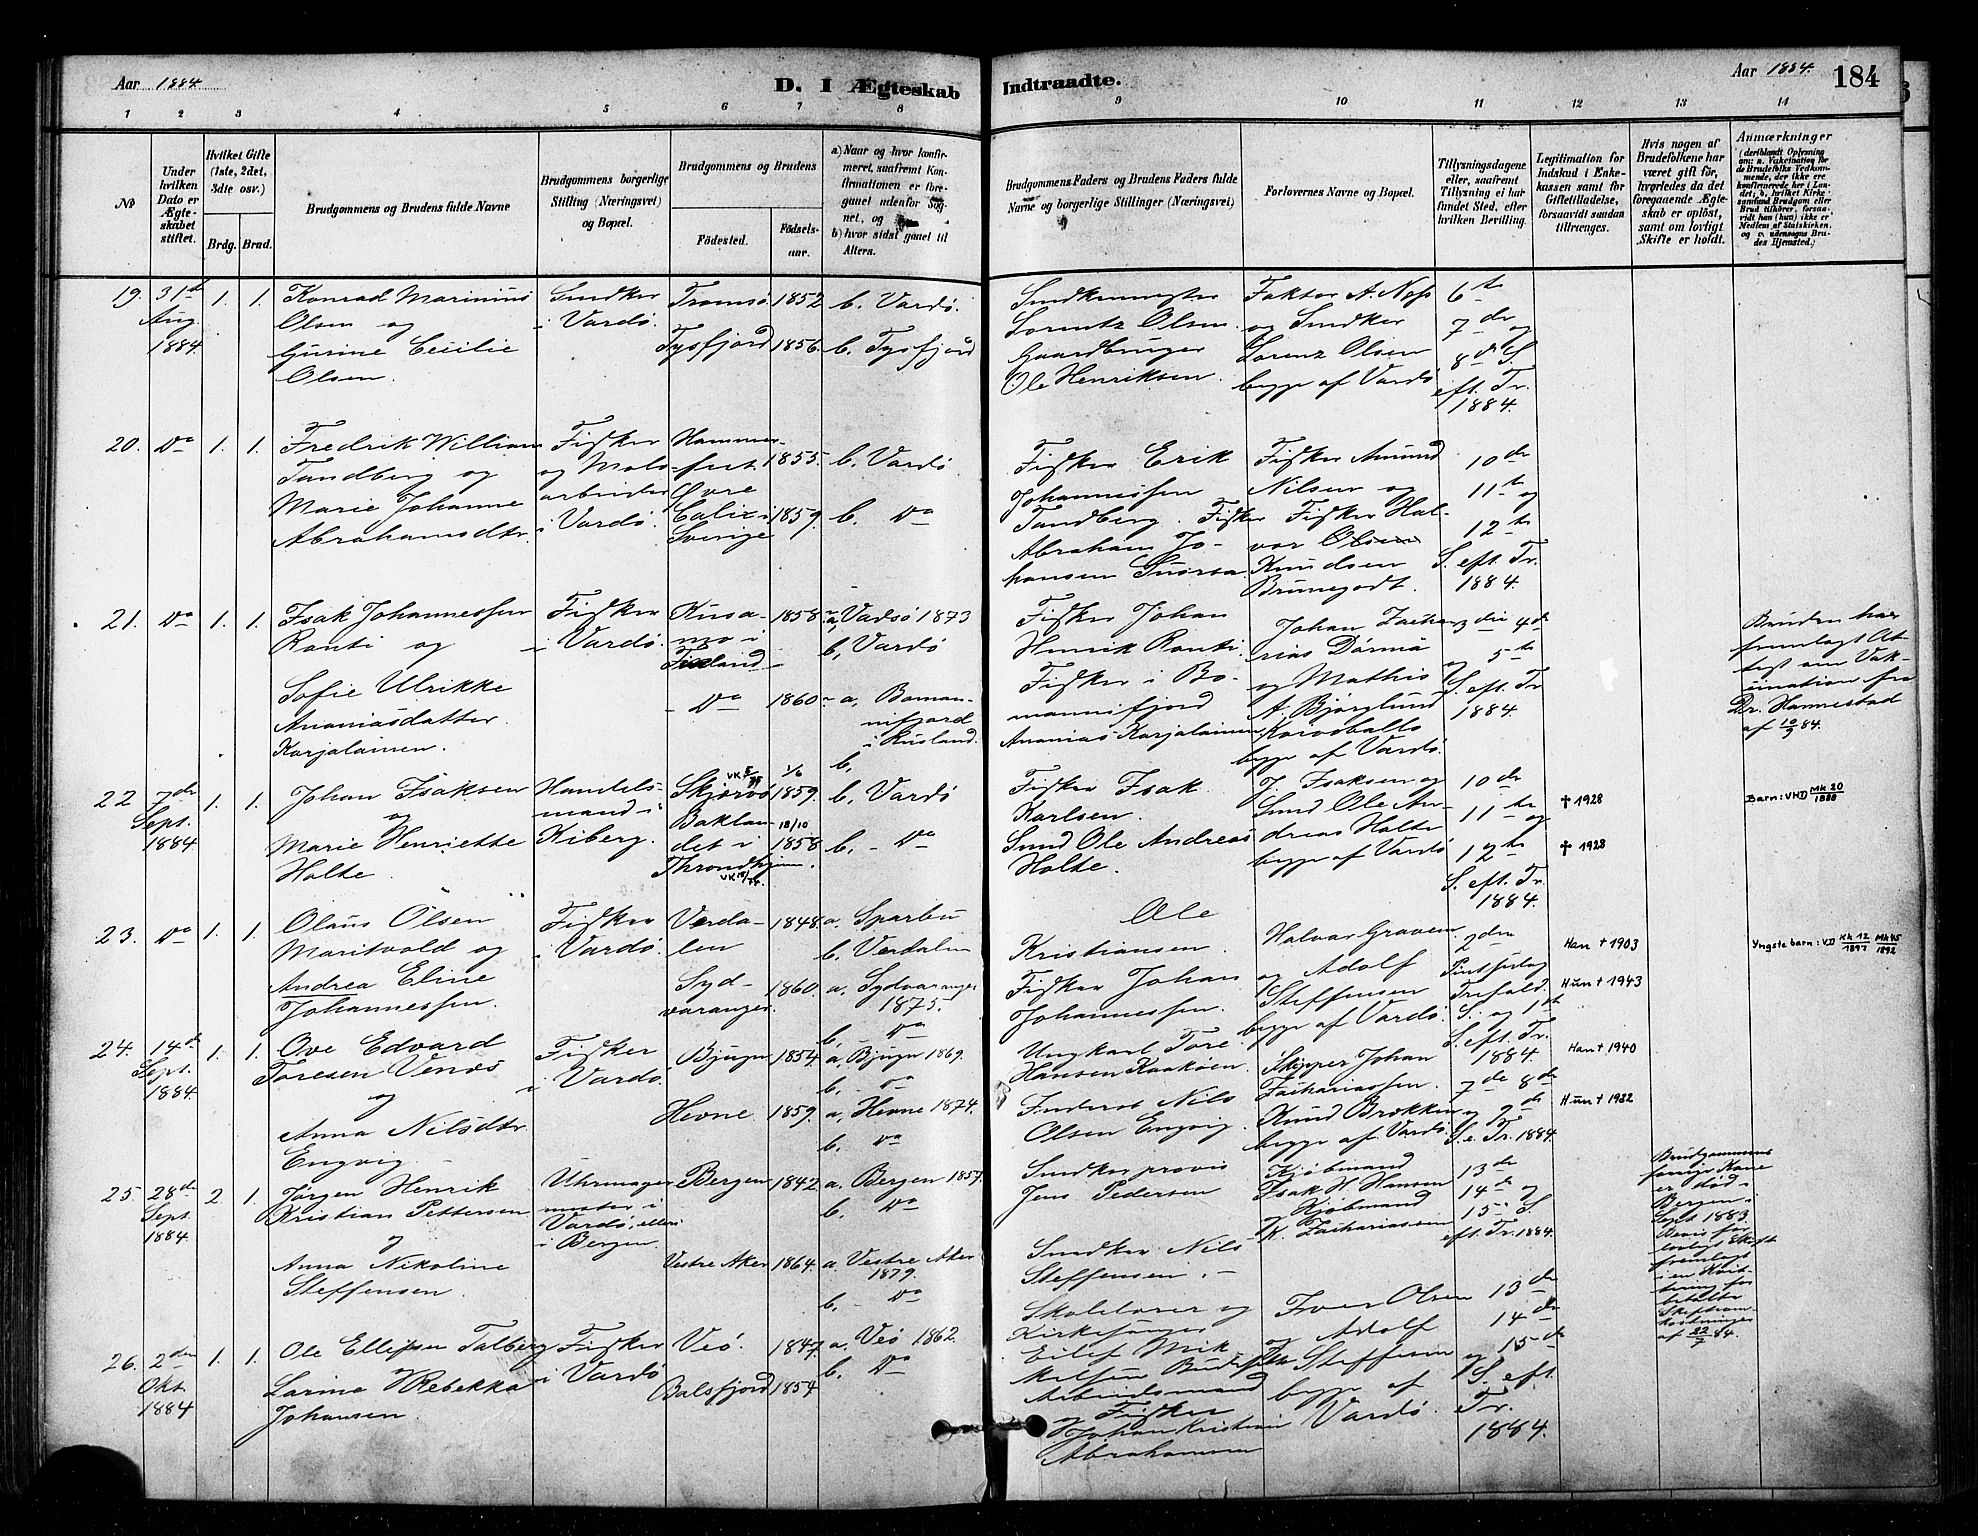 Aar 1884.
D. I Ægteskab
Indtraadte.
Aar 1884.
184
1 2 3 4 5 6 7 8 9 10 11 12 13 14
No
Under hvilken Dato er Ægteskabet stiftet.
Hvilket Gifte (1ste, 2det, 3die osv.)
Brdg. Brud.
Brudgommens og Brudens fulde Navne
Brudgommens borgerlige Stilling (Næringsvei) og Bopæl.
Brudgommens og Brudens
Fødested.
Fødselsaar.
a) Naar og hvor konfirmeret, saafremt Konfirmationen er foregaaet udenfor Sognet, og
b) hvor sidst gaaet til Alters.
Brudgommens Faders og Brudens Faders fulde Navne og borgerlige Stillinger (Næringsvei)
Forlovernes Navne og Bopæl.
Tillysningsdagene eller, saafremt Tillysning ei har fundet Sted, efter hvilken Bevilling.
Legitimation for Indskud i Enkekassen samt for Giftetilladelse, forsaavidt saadan tiltrænges.
Hvis nogen af Brudefolkene har været gift før, hvorledes da det foregaaende Ægteskab er opløst, samt om lovligt Skifte er holdt.
Anmærkninger
(deriblandt Oplysning om: a. Vakcination for de Brudefolks Vedkommende, der ikke ere konfirmerede her i Landet; b. hvilket Kirkesamfund Brudgom eller Brud tilhører, forsaavidt han (hun) ikke er Medlem af Statskirken, og c. udensogns Brudes Hjemsted.)
19. 31te Aug. 1884 1. 1.
Konrad Marinius
Olsen og
Gurine Cecilie
Olsen.
Snedker
i Vardø.
Tromsø 1852
Tysfjord 1856.
b. Vardø.
b. Tysfjord
Snedkermester
Lorentz Olsen.
Gaardbruger
Ole Henriksen.
Faktor A. Ness
og Snedker
Lorenz Olsen
begge af Vardø
6te
7de og
8de S.
eft. Tr.
1884.
20. Do 1. 1.
Fredrik William
Tandberg og
Marie Johanne
Abrahamsdtr.
Fisker
og Malerarbeider
i Vardø.
Hammerfest 1855.
Øvre
Calix i
Sverige
1859.
b. Vardø
b. Do
Fisker Erik
Johannessen
Tandberg. Fisker
Abraham Johansen
Fisker Amund
Nilsen og
Fisker Halvor
Olsen
Knudsen
Brunegodt.
10de
11te og
12te
S. eft. Tr.
1884.
21. Do 1. 1.
Isak Johannessen
Ranti og
Sofie Ulrikke
Ananiasdatter
Karjalainen.
Fisker
i Vardø.
Kusamo i
Finland
Do
1858
1860
a, Vadsø 1873
b, Vardø
a, Bomannifjord
i Rusland.
b,
Fisker Johan
Henrik Ranti.
Fisker i Bomannifjord
Ananias Karjalainen
Johan Zacharias
og Mathis
A. Bjørglund
begge af Vardø.
3die 4de
og 5te
S. eft. Tr
1884.
Bruden har
fremlagt Attest
om Vakcination
fra
Dr. Hannestad
af 10/9 84.
22 7de Sept. 1884 1. 1.
Johan Isaksen
og
Marie Henriette
Holte
Handelsmand
i
Kiberg.
Skjærvø
Baklandet
i
Throndhjem.
1/6 1859.
18/10 1858
b. Vardø
b. - Do
Fisker Isak
Karlsen.
Smed Ole Andreas
Holte.
J. Isaksen og
Smed Ole Andreas
Holte
begge af Vardø
10de
11te og
12te
S. eft. Tr.
1884.
† 1928
† 1928
Barn: VHD Mk 20/1888
23. Do 1. 1.
Olaus Olsen
Maritvold og
Andrea Eline
Johannessen.
Fisker
i Vardø.
Verdalen
Sydvaranger
1848.
1860.
a. Sparbu
b. Verdalen
a, Sydvaranger
1875.
b. Do
Ole
Kristiansen.
Fisker Johan
Johannessen.
Halvar Graven
og Adolf
Steffensen
begge af Vardø.
2den
Pintsedag
Trefold.
S. og 1ste
S. eft. Tr.
1884.
Han † 1903
Hun † 1943
Yngste barn: VD Kk 12/1897 Mk 45/1892
24. 14de Sept. 1884 1. 1.
Ove Edvard
Toresen Venes
og
Anna Nilsdtr.
Engvig.
Fisker
i Vardø.
Bjugn 1854
Hevne 1859.
a, Bjugn 1869.
b. Do
a, Hevne 1874.
b. Do
Ungkarl Tore
Hansen
Inderst Nils
Olsen Engvig.
Skipper Johan
Zachariassen.
Knud Brækken
begge af Vardø.
7de 8de
og 9de
S. e. Tr. 1884.
Han † 1940
Hun † 1932
25 28de Sept. 1884 2. 1.
Jørgen Henrik
Kristian Pettersen
og
Anna Nikoline
Steffensen.
Uhrmagermester
i
Vardø, eller
i Bergen.
Bergen 1842
Vestre Aker 1864
a. Bergen 1857.
b. Do
a. Vestre Aker
1879.
b. - Do
Snedker
Jens Pedersen
Snedker Nils
Steffensen.
Kjøbmand
Isak H. Hansen
og Kjøbmand
K. Zachariassen
13de
14de og
15de S
eft. Tr. 1884.
Brudgommens
forrige Kone
er død i
Bergen i
Sept 1883.
Bevis for
lovligt Skifte
fremlagt
i en Kvittering
for
betalte
Skifteomkostninger
af 22/7 84.
26. 2den Okt. 1884 1. 1.
Ole Ellefsen Talberg
og
Larina Rebekka
Johansen.
Fisker
i Vardø
Veø. 1847.
Balsfjord 1854
a. Veø 1862.
b. Do
Skolelærer og
Kirkesanger
Eilef
Arbeidsmand
og Fisker
Johan Kristian
Abrahamsen
Iver Olsen
og Adolf
Steffensen
begge af
Vardø.
13de
14de
og 15de
S. eft.
Tr.
1884.